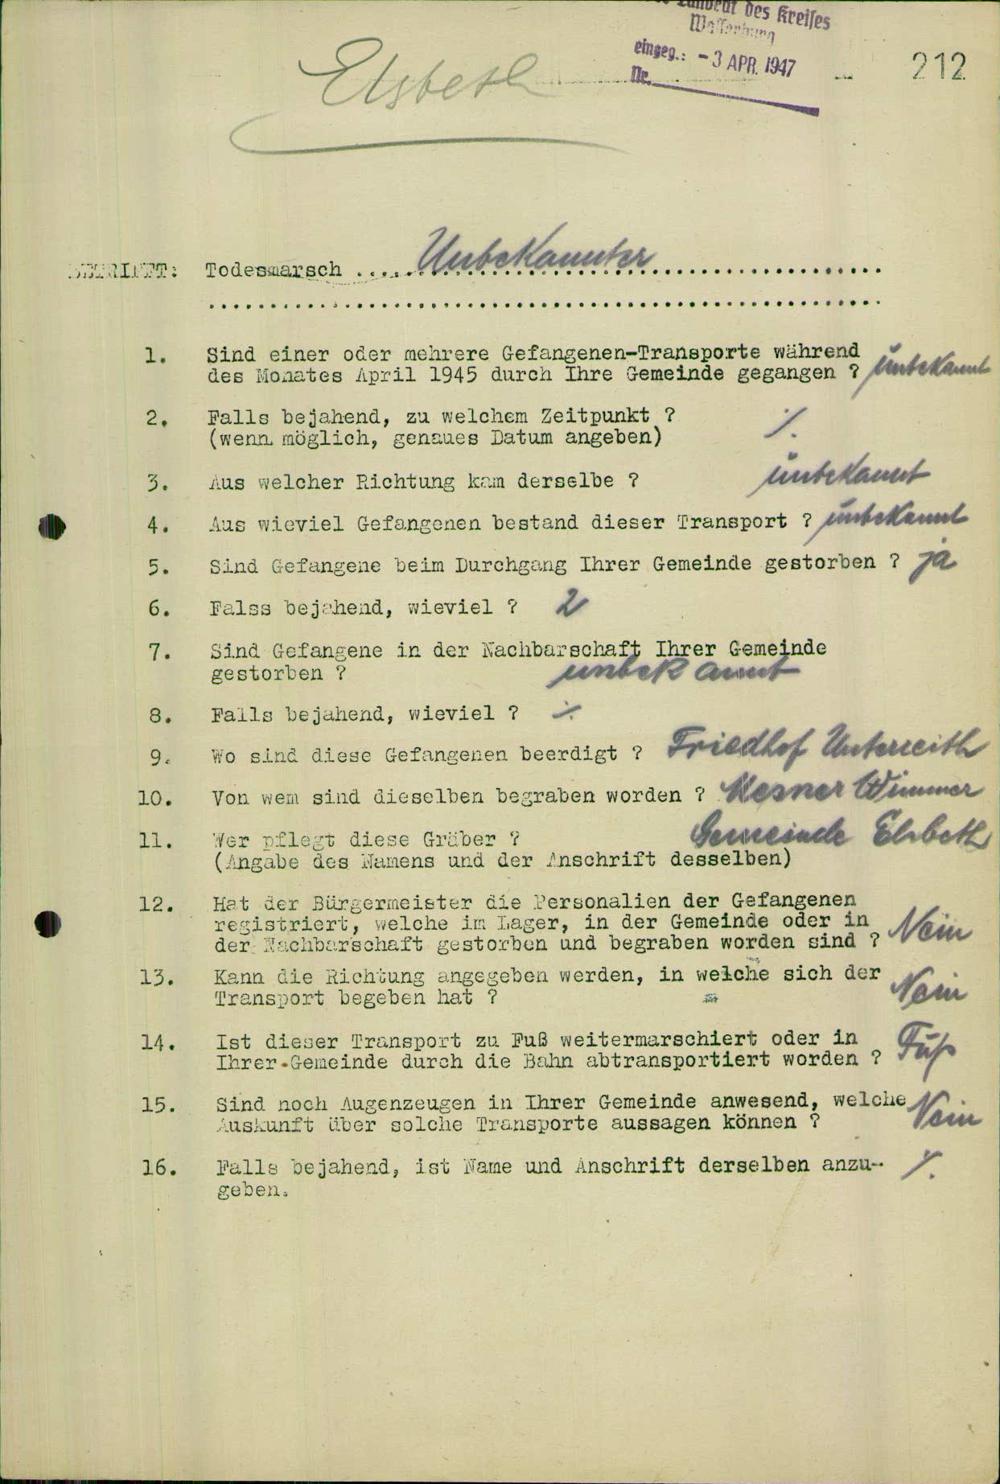 Landrat des Kreises
Wasserburg
eingeg.: - 3 APR. 1947
Nr.
212
Elsbeth
BETRIFFT: Todesmarsch ..... Unbekannter
1. Sind einer oder mehrere Gefangenen-Transporte während
des Monates April 1945 durch Ihre Gemeinde gegangen ? unbekannt
2. Falls bejahend, zu welchem Zeitpunkt ?
(wenn möglich, genaues Datum angeben) ·/.
3. Aus welcher Richtung kam derselbe ? unbekannt
4. Aus wieviel Gefangenen bestand dieser Transport ? unbekannt
5. Sind Gefangene beim Durchgang Ihrer Gemeinde gestorben ? ja
6. Falss bejahend, wieviel ? 2
7. Sind Gefangene in der Nachbarschaft Ihrer Gemeinde
gestorben ? unbekannt
8. Falls bejahend, wieviel ? ·/.
9. Wo sind diese Gefangenen beerdigt ? Friedhof Unterreith
10. Von wem sind dieselben begraben worden ? Mesner Wimmer
11. Wer pflegt diese Gräber ? Gemeinde Elsbeth
(Angabe des Namens und der Anschrift desselben)
12. Hat der Bürgermeister die Personalien der Gefangenen
registriert, welche im Lager, in der Gemeinde oder in
der Nachbarschaft gestorben und begraben worden sind ? Nein
13. Kann die Richtung angegeben werden, in welche sich der
Transport begeben hat ? Nein
14. Ist dieser Transport zu Fuß weitermarschiert oder in
Ihrer Gemeinde durch die Bahn abtransportiert worden ? Fuß
15. Sind noch Augenzeugen in Ihrer Gemeinde anwesend, welche
Auskunft über solche Transporte aussagen können ? Nein
16. Falls bejahend, ist Name und Anschrift derselben anzu- ·/.
geben.